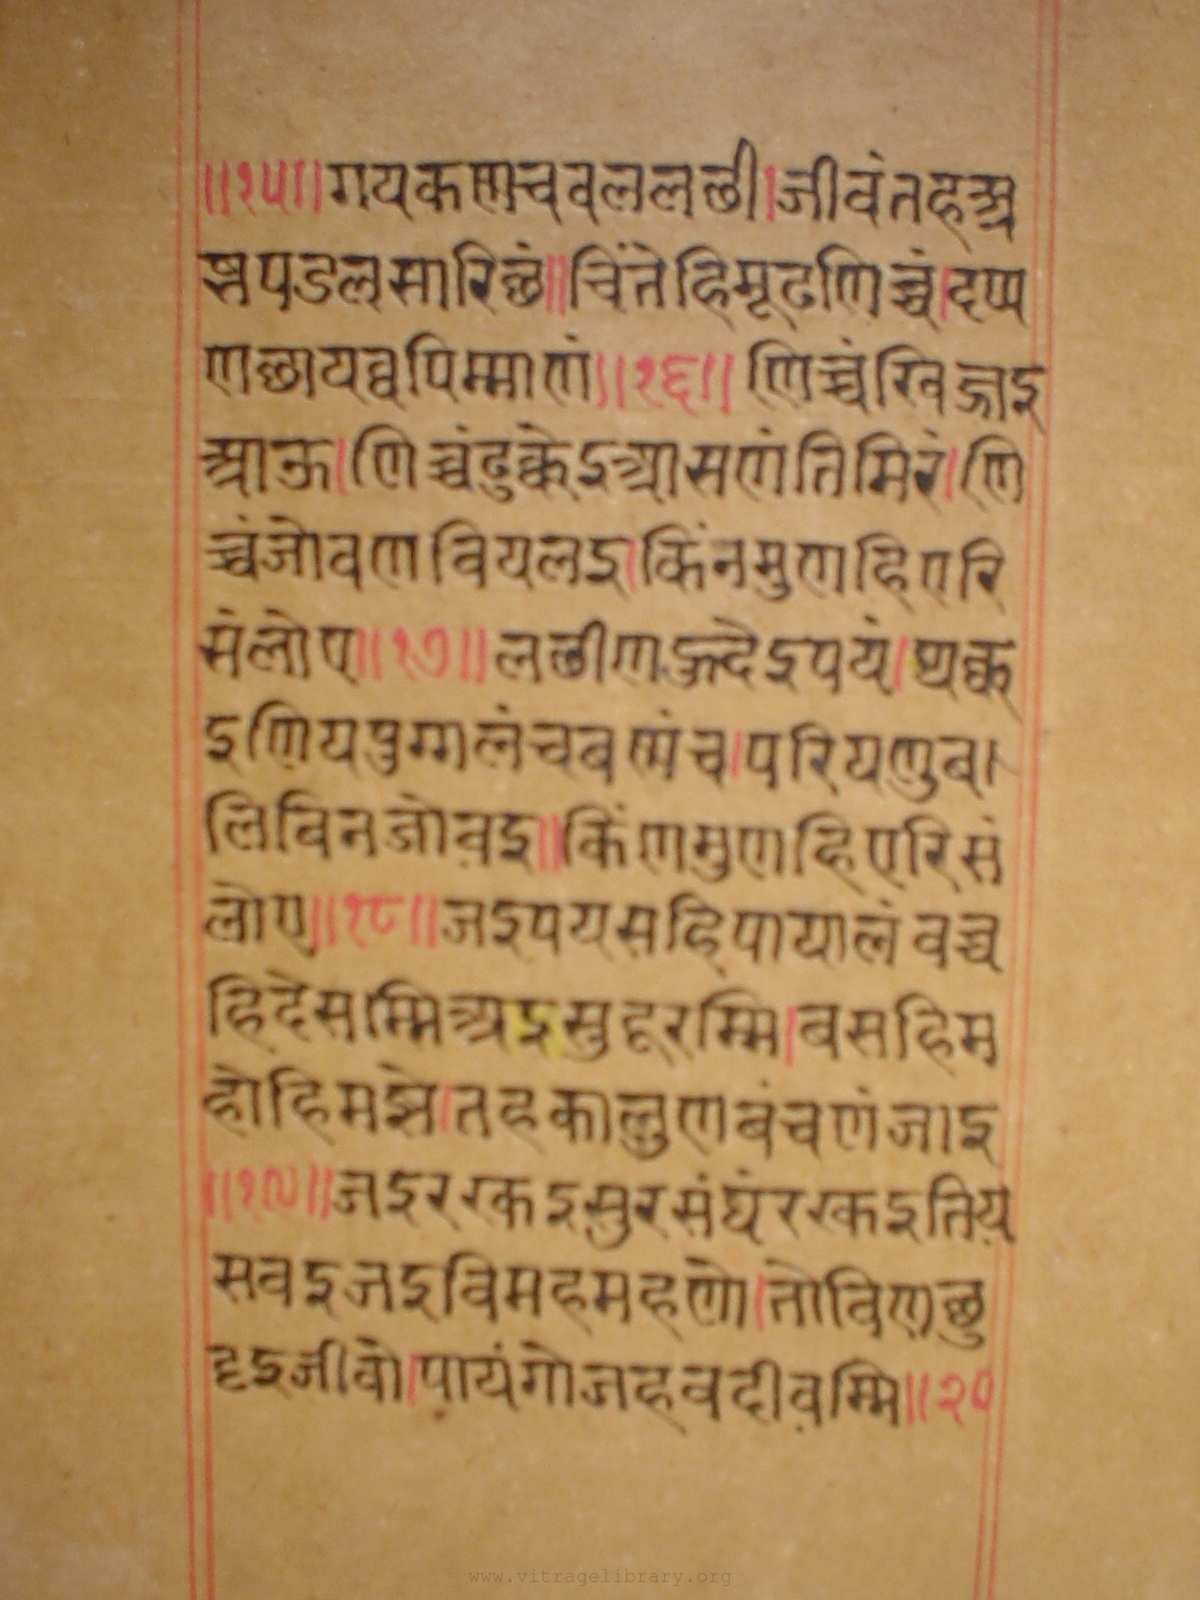 ॥१५॥गयकण्णचवललछी।जीवंतहअ
प्नपडलसारिछं॥चिंतेहिमूढणिच्चं।दप्प
णछायव्वपिम्माणं॥१६॥णिच्चंखिज्जइ
आऊ।णिच्चंढुक्केइआसणंतिमिरं।णि
च्चंजोवणवियलइ।किंनमुणहिएरि
संलोए॥१७॥लछीणऊदेइपयं।थक्क
इणियपुग्गलंचबण्णंच।परियणुवा
लिविनजोवइ॥किंणमुणहिएरिसं
लोए॥१८॥जइपयसहिपायालंवच्च
हिदेसम्मिअइसुदूरम्मि।वसहिम
होहिमझे।तहकालुणबंचणंजाइ
॥१९॥जइररकइसुरसंघंररकइतिय
सवइजइविमहमहणो।तोविणछु
ट्टइजीवो।पायंगोजहवदीवम्मि॥२०
www.vitragelibrary.org